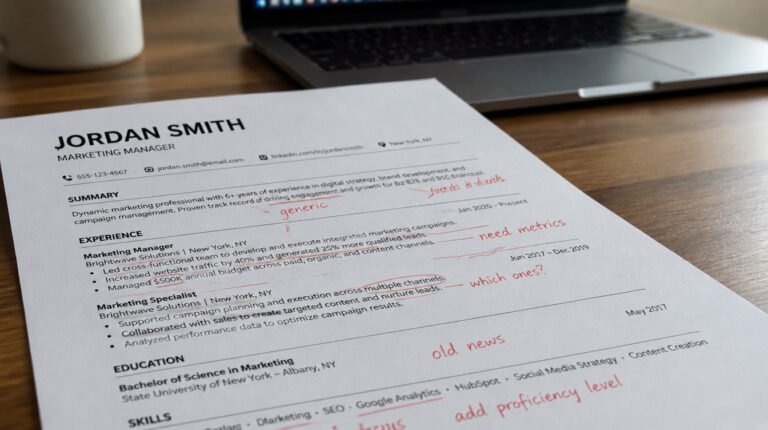 JORDAN SMITH
MARKETING MANAGER
555-123-4567 jordan.smith@email.com linkedin.com/in/jordansmith New York, NY
SUMMARY
Dynamic marketing professional with 6+ years of experience in digital strategy, brand development, and
campaign management. Proven track record of driving engagement and growth for B2B and
generic
EXPERIENCE
Jan 2020 – Present
Marketing Manager
Brightwave Solutions | New York, NY
• Led cross-functional team to develop and execute integrated marketing campaigns.
• Increased website traffic by 40% and generated 25% more qualified leads.
need metrics
• Managed $500K annual budget across paid, organic, and content channels.
Jun 2017 – Dec 2019
Marketing Specialist
Brightwave Solutions | New York, NY
• Supported campaign planning and execution across multiple channels.
which ones?
• Collaborated with sales to create targeted content and nurture leads.
• Analyzed performance data to optimize campaign results.
May 2017
EDUCATION
old news
Bachelor of Science in Marketing
State University of New York – Albany, NY
SKILLS
· SEO · Google Analytics · HubSpot · Social Media Strategy · Content Creation
add proficiency level